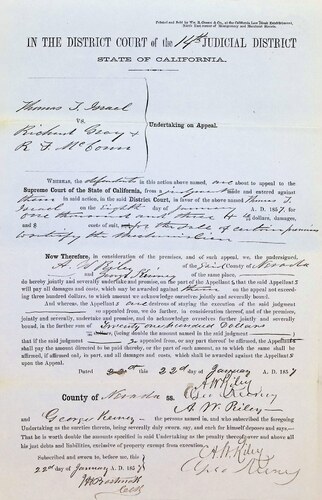 IN THE DISTRICT COURT of the 14th JUDICIAL DISTRICT
STATE OF CALIFORNIA.
Thomas J. Israel
vs.
Undertaking on Appeal.
Richard
R. F. McConn
WHEREAS, the defendants in this action above named, are about to appeal to the
Supreme Court of the State of California, from a judgment made and entered against
them in said action, in the said District Court, in favor of the above named Thomas J.
Israel on the Eighth day of January A. D. 1857, for
one thousand and three dollars, damages,
and $ costs of suit, for the sale of certain premises
to satisfy the Mechanics Lien
Now Therefore, in consideration of the premises, and of such appeal, we, the undersigned,
A. W. Riley of the said County of Nevada
and George of the same place,
do hereby jointly and severally undertake and promise, on the part of the Appellant s that the said Appellant s
will pay all damages and costs, which may be awarded against them on the appeal not exceed-
ing three hundred dollars, to which amount we acknowledge ourselves jointly and severally bound.
And whereas, the Appellant s are desirous of staying the execution of the said judgment
so appealed from, we do further, in consideration thereof, and of the premises,
jointly and severally, undertake and promise, and do acknowledge ourselves further jointly and severally
bound, in the further sum of Twenty one hundred Dollars
(being double the amount named in the said judgment
that if the said judgment so appealed from, or any part thereof, be affirmed, the Appellant s
shall pay the amount directed to be paid thereby, or the part of such amount, as to which the same shall be
affirmed, if affirmed only in part, and all damages and costs, which shall be awarded against the Appellant s
upon the Appeal.
Dated this 22d day of January A. D. 1857
A W Riley
Geo
County of Nevada ss. A. W. Riley
and George the persons named in and who subscribed the foregoing
Undertaking as the sureties thereto, being severally duly sworn, say, each for himself deposes and says:—
That he is worth double the amounts specified in said Undertaking as the penalty thereof, over and above all
his just debts and liabilities, exclusive of property exempt from execution.
Subscribed and sworn to, before me, this
22d day of January A. D. 1857
A W Riley
Geo